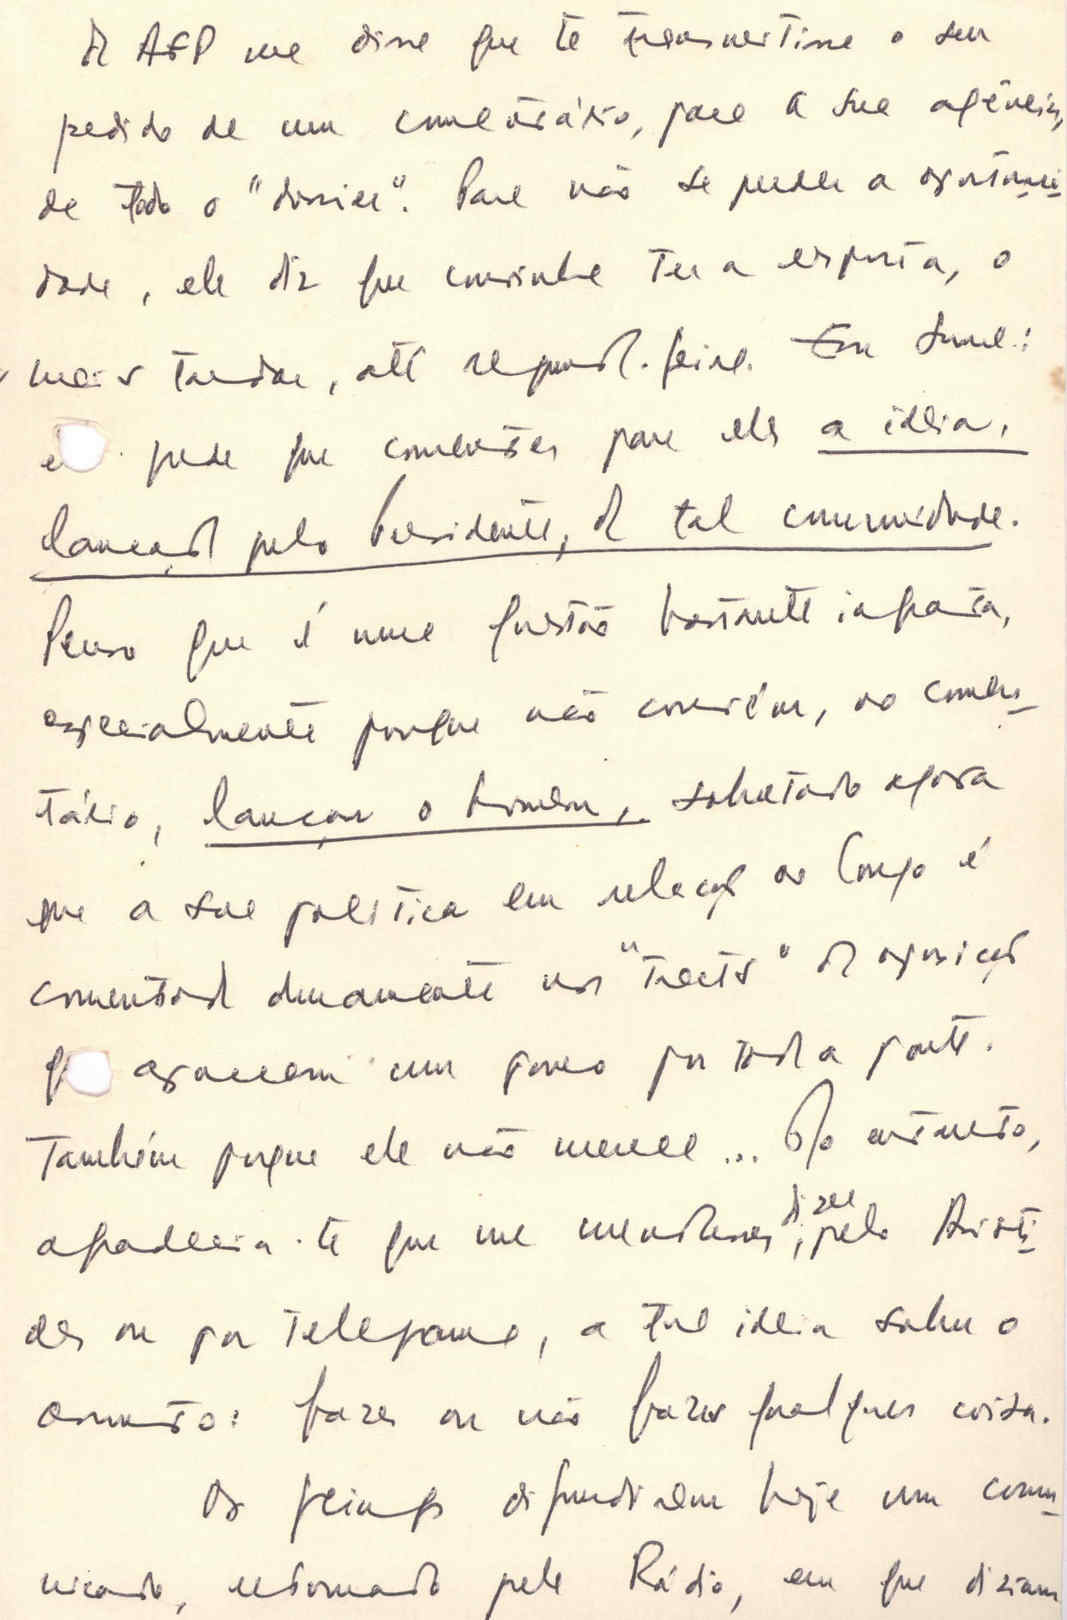 da AFP me disse que te transmitisse o seu
pedido de um comentário, para a sua agência,
de todo o "dossier". Para não se perder a oportuni-
dade, ele diz que convinha ter a resposta, o
mais tardar, até segunda-feira. Em suma:
pede que comentes para eles a ideia,
lançada pelo Presidente, da tal comunidade.
Penso que é uma questão bastante ingrata,
especialmente porque não convém, no comen-
tário, lançar o homem, sobretudo agora
que a sua política em relação ao Congo é
comentada duramente nos "tracts" da oposição
que aparecem um pouco por toda a parte.
Também porque ele não merece... No entanto,
agradecia-te que me mandasses dizer, pelo Aristi-
des ou por telegrama, a tua ideia sobre o
assunto: fazer ou não fazer qualquer coisa.
Os difundiram hoje um comu-
nicado, retomado pela Rádio, em que diziam